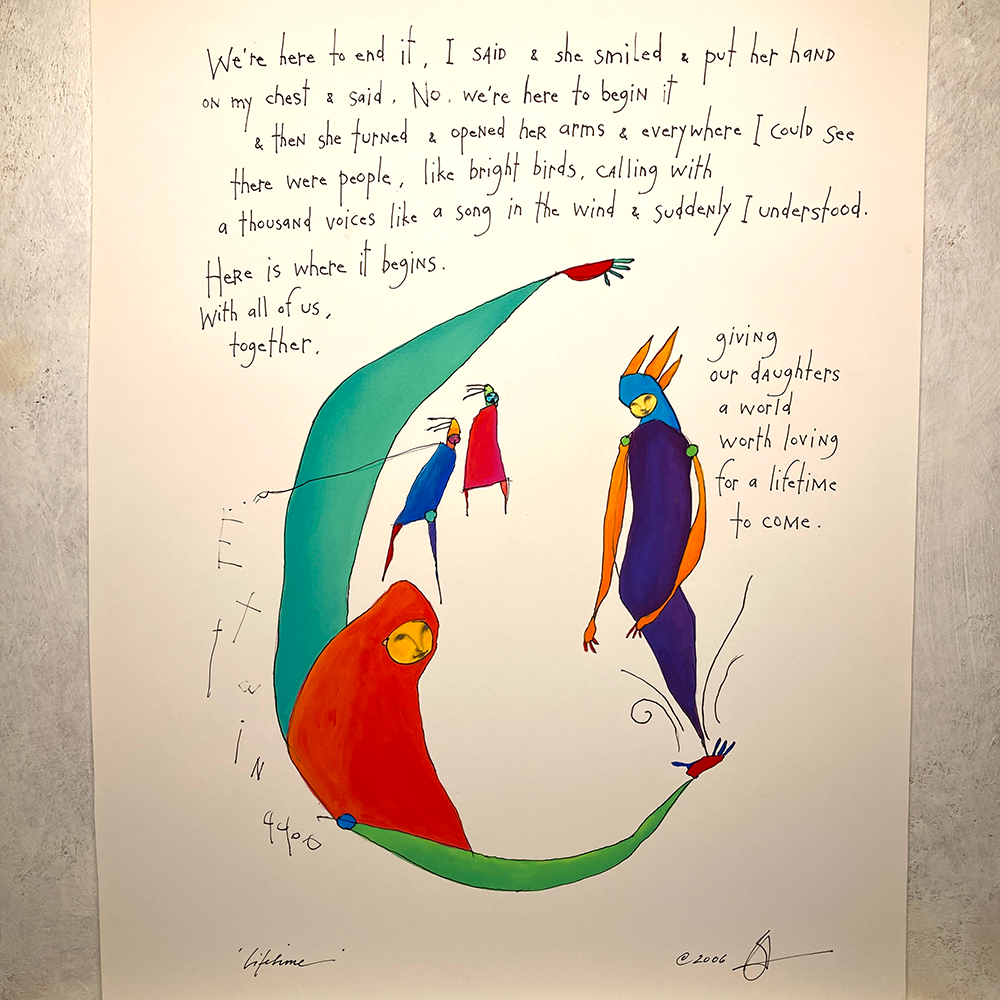 We're here to end it, I SAID & she smiled & put her hAND
ON my chest & said, No, we're here to begin it
& then she turned & opened her arms & everywhere I could see
there were people, like bright birds, calling with
a thousand voices like a song in the wind & suddenly I understood.
Here is where it begins.
With all of us,
together,
giving
our daughters
a world
worth loving
for a lifetime
to come.
'Lifetime'
©2006